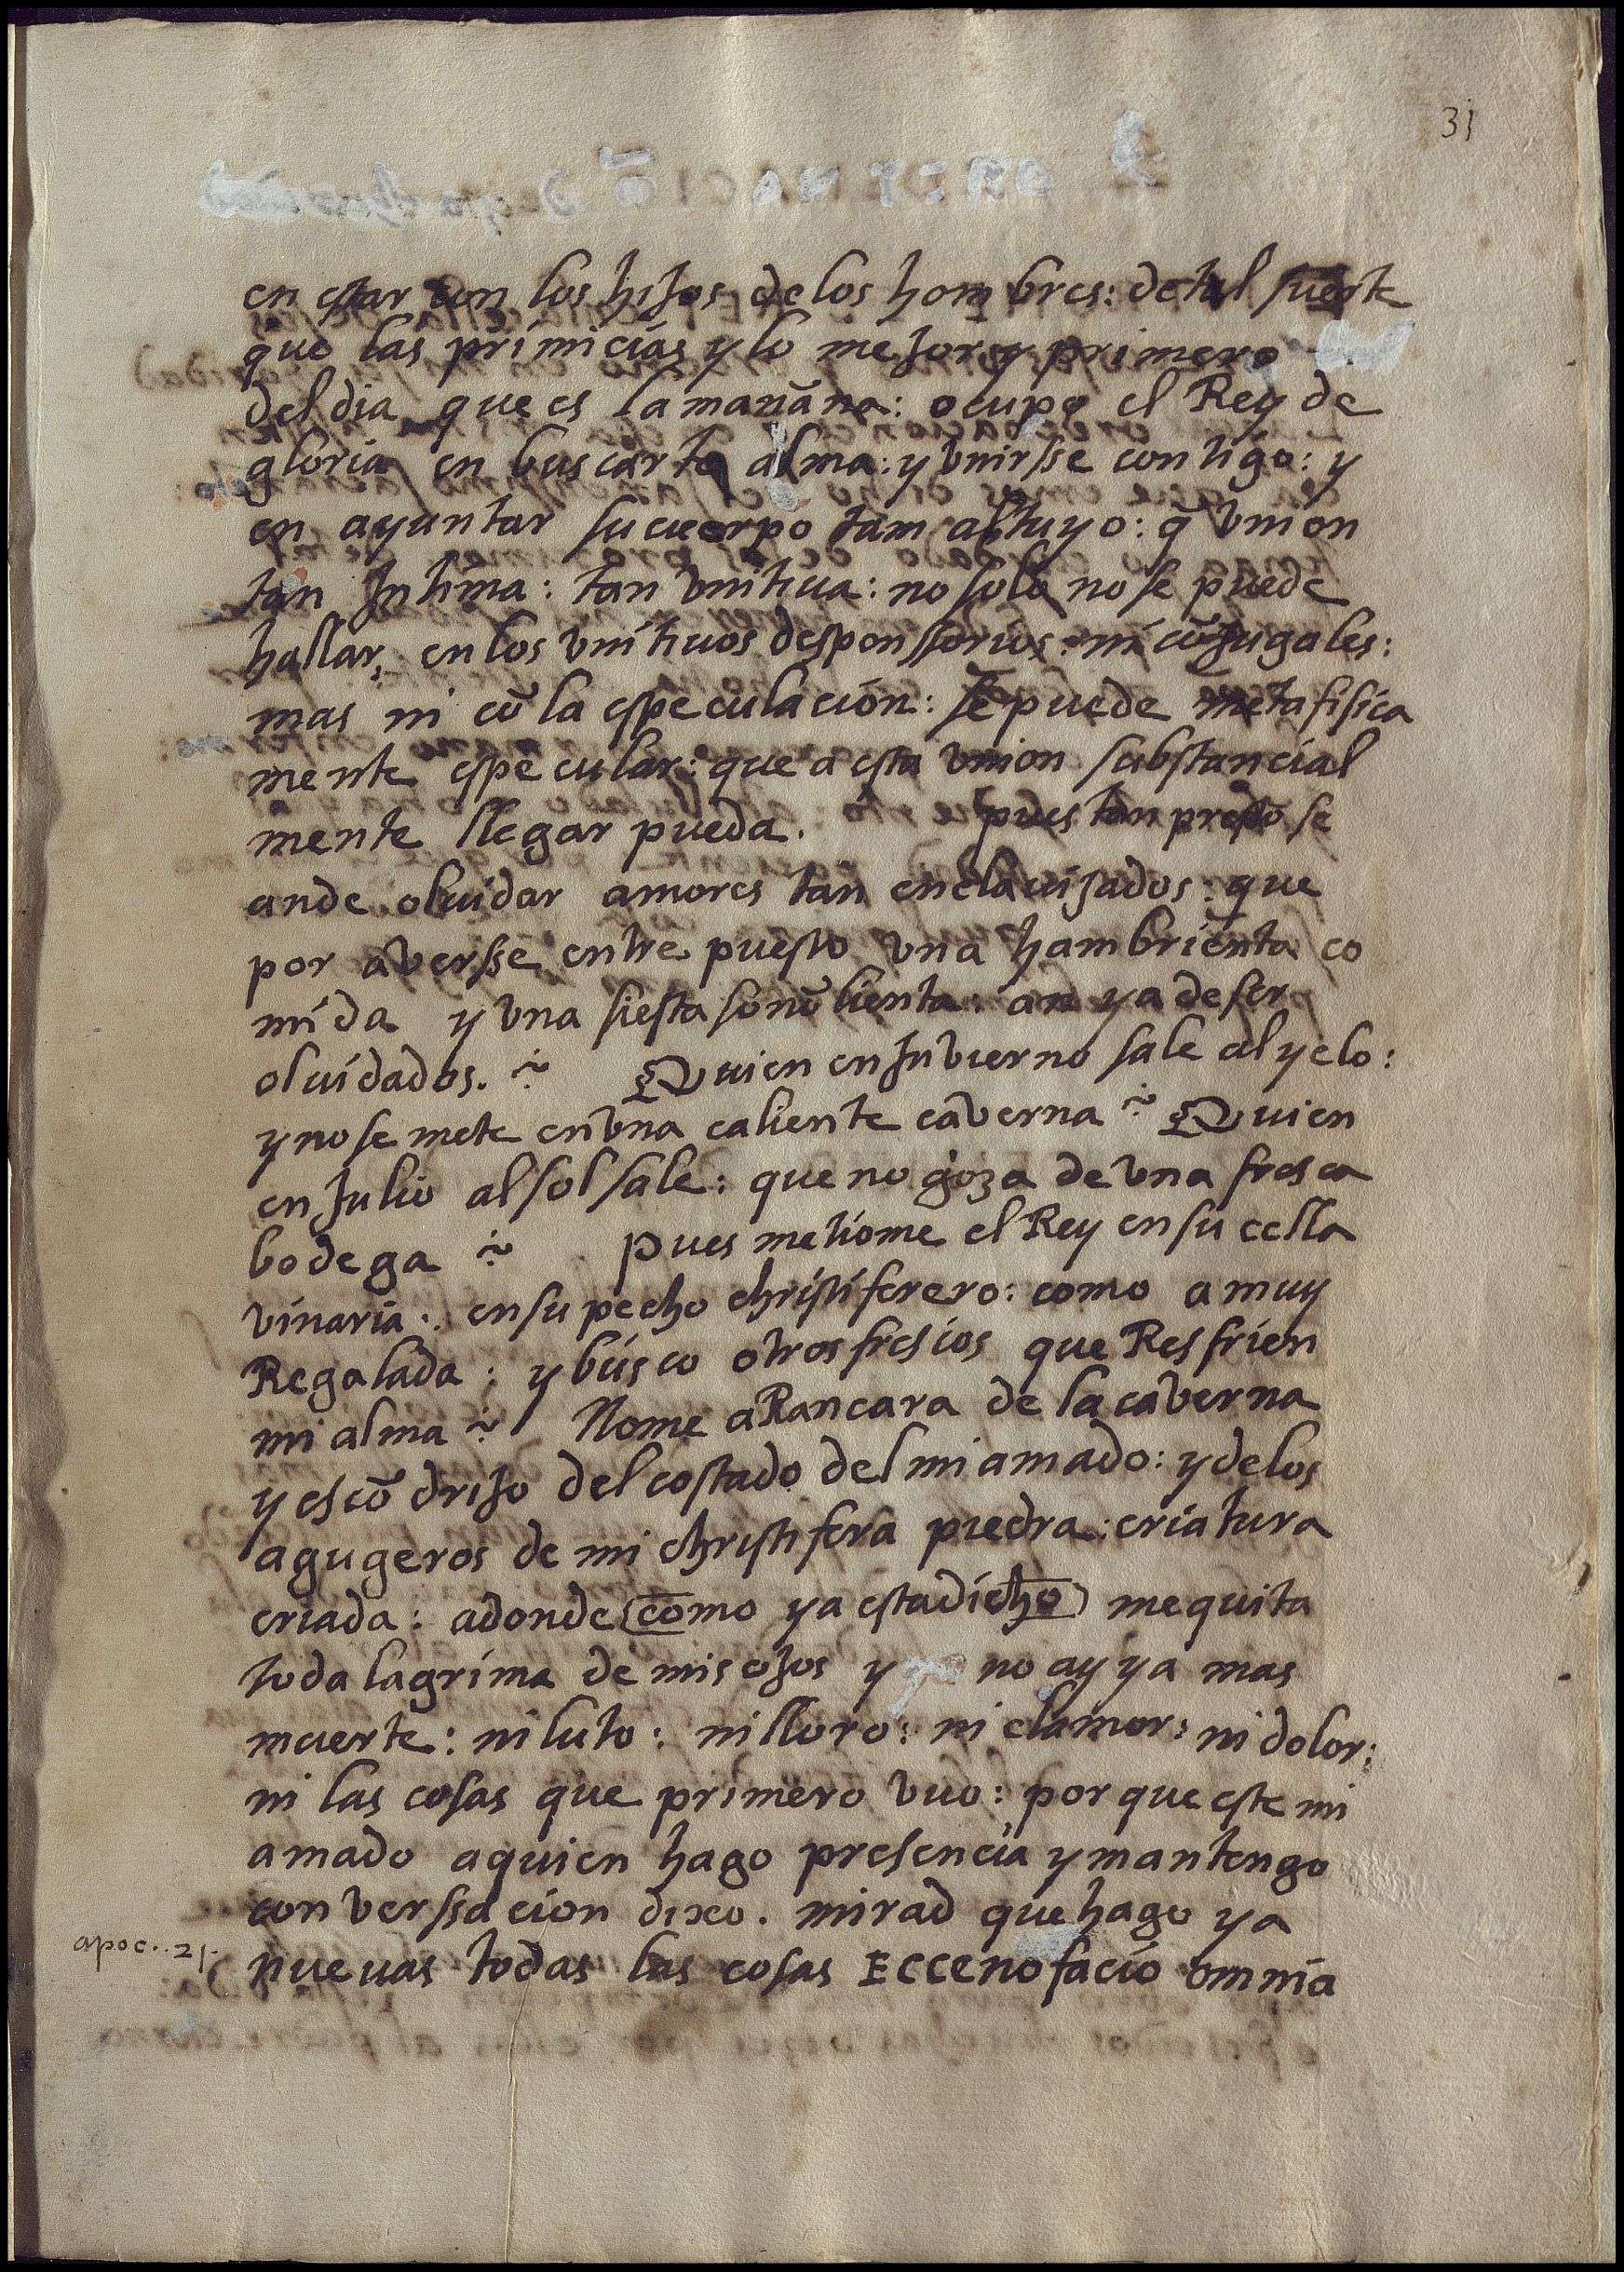 31
en estar con los hijos de los hombres: de tal suerte
que las primicias y lo mejor y primero
del dia que es la mañana: ocupo el Rey de
gloria en buscarte alma: y vnirsse contigo: y
en ayuntar su cuerpo tam al tuyo: q̃ vnion
tan Jntima: tan vnitiua: no solo no se puede
hallar, en los vnitiuos desponssorios: ni cõjugales:
mas ni cõ la especulacion: se puede metafisica
mente especular: que a esta vnion substancial
mente llegar pueda. pues tan presto se
ande oluidar amores tan enclauijados: que
por aversse entre puesto vna hambrienta co
mida y vna siesta sonõlienta: an ya de ser
oluidados. ~ Quien en Jnvierno sale al yelo:
y no se mete en vna caliente caverna ~ Quien
en Julio al sol sale: que no goza de vna fresca
bodega ~ pues metiome el Rey en su cella
vinaria. en su pecho christiferero: como a muy
Regalada: y búsco otros frescos que Resfrien
mi alma ~ No me aRancara de la caverna
y escõdrijo del costado del mi amado: y de los
agugeros de mi christifera piedra: criatura
criada: adonde (como ya esta dicho) me quita
toda lagrima de mis ojos y no ay ya mas
muerte: ni luto: ni lloro: ni clamor: ni dolor:
ni las cosas que primero vuo: por que este mi
amado a quien hago presencia y mantengo
converssacion dixo. mirad que hago ya
apoc..21. nueuas todas las cosas Ecce no facio omnia